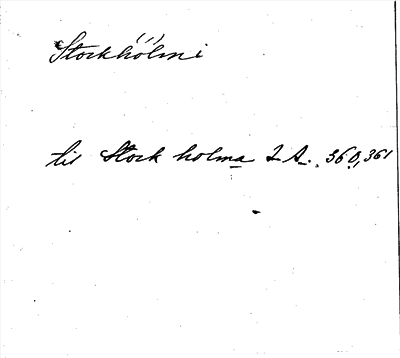 Stockhólmi
til Stock holma I A. 360, 361